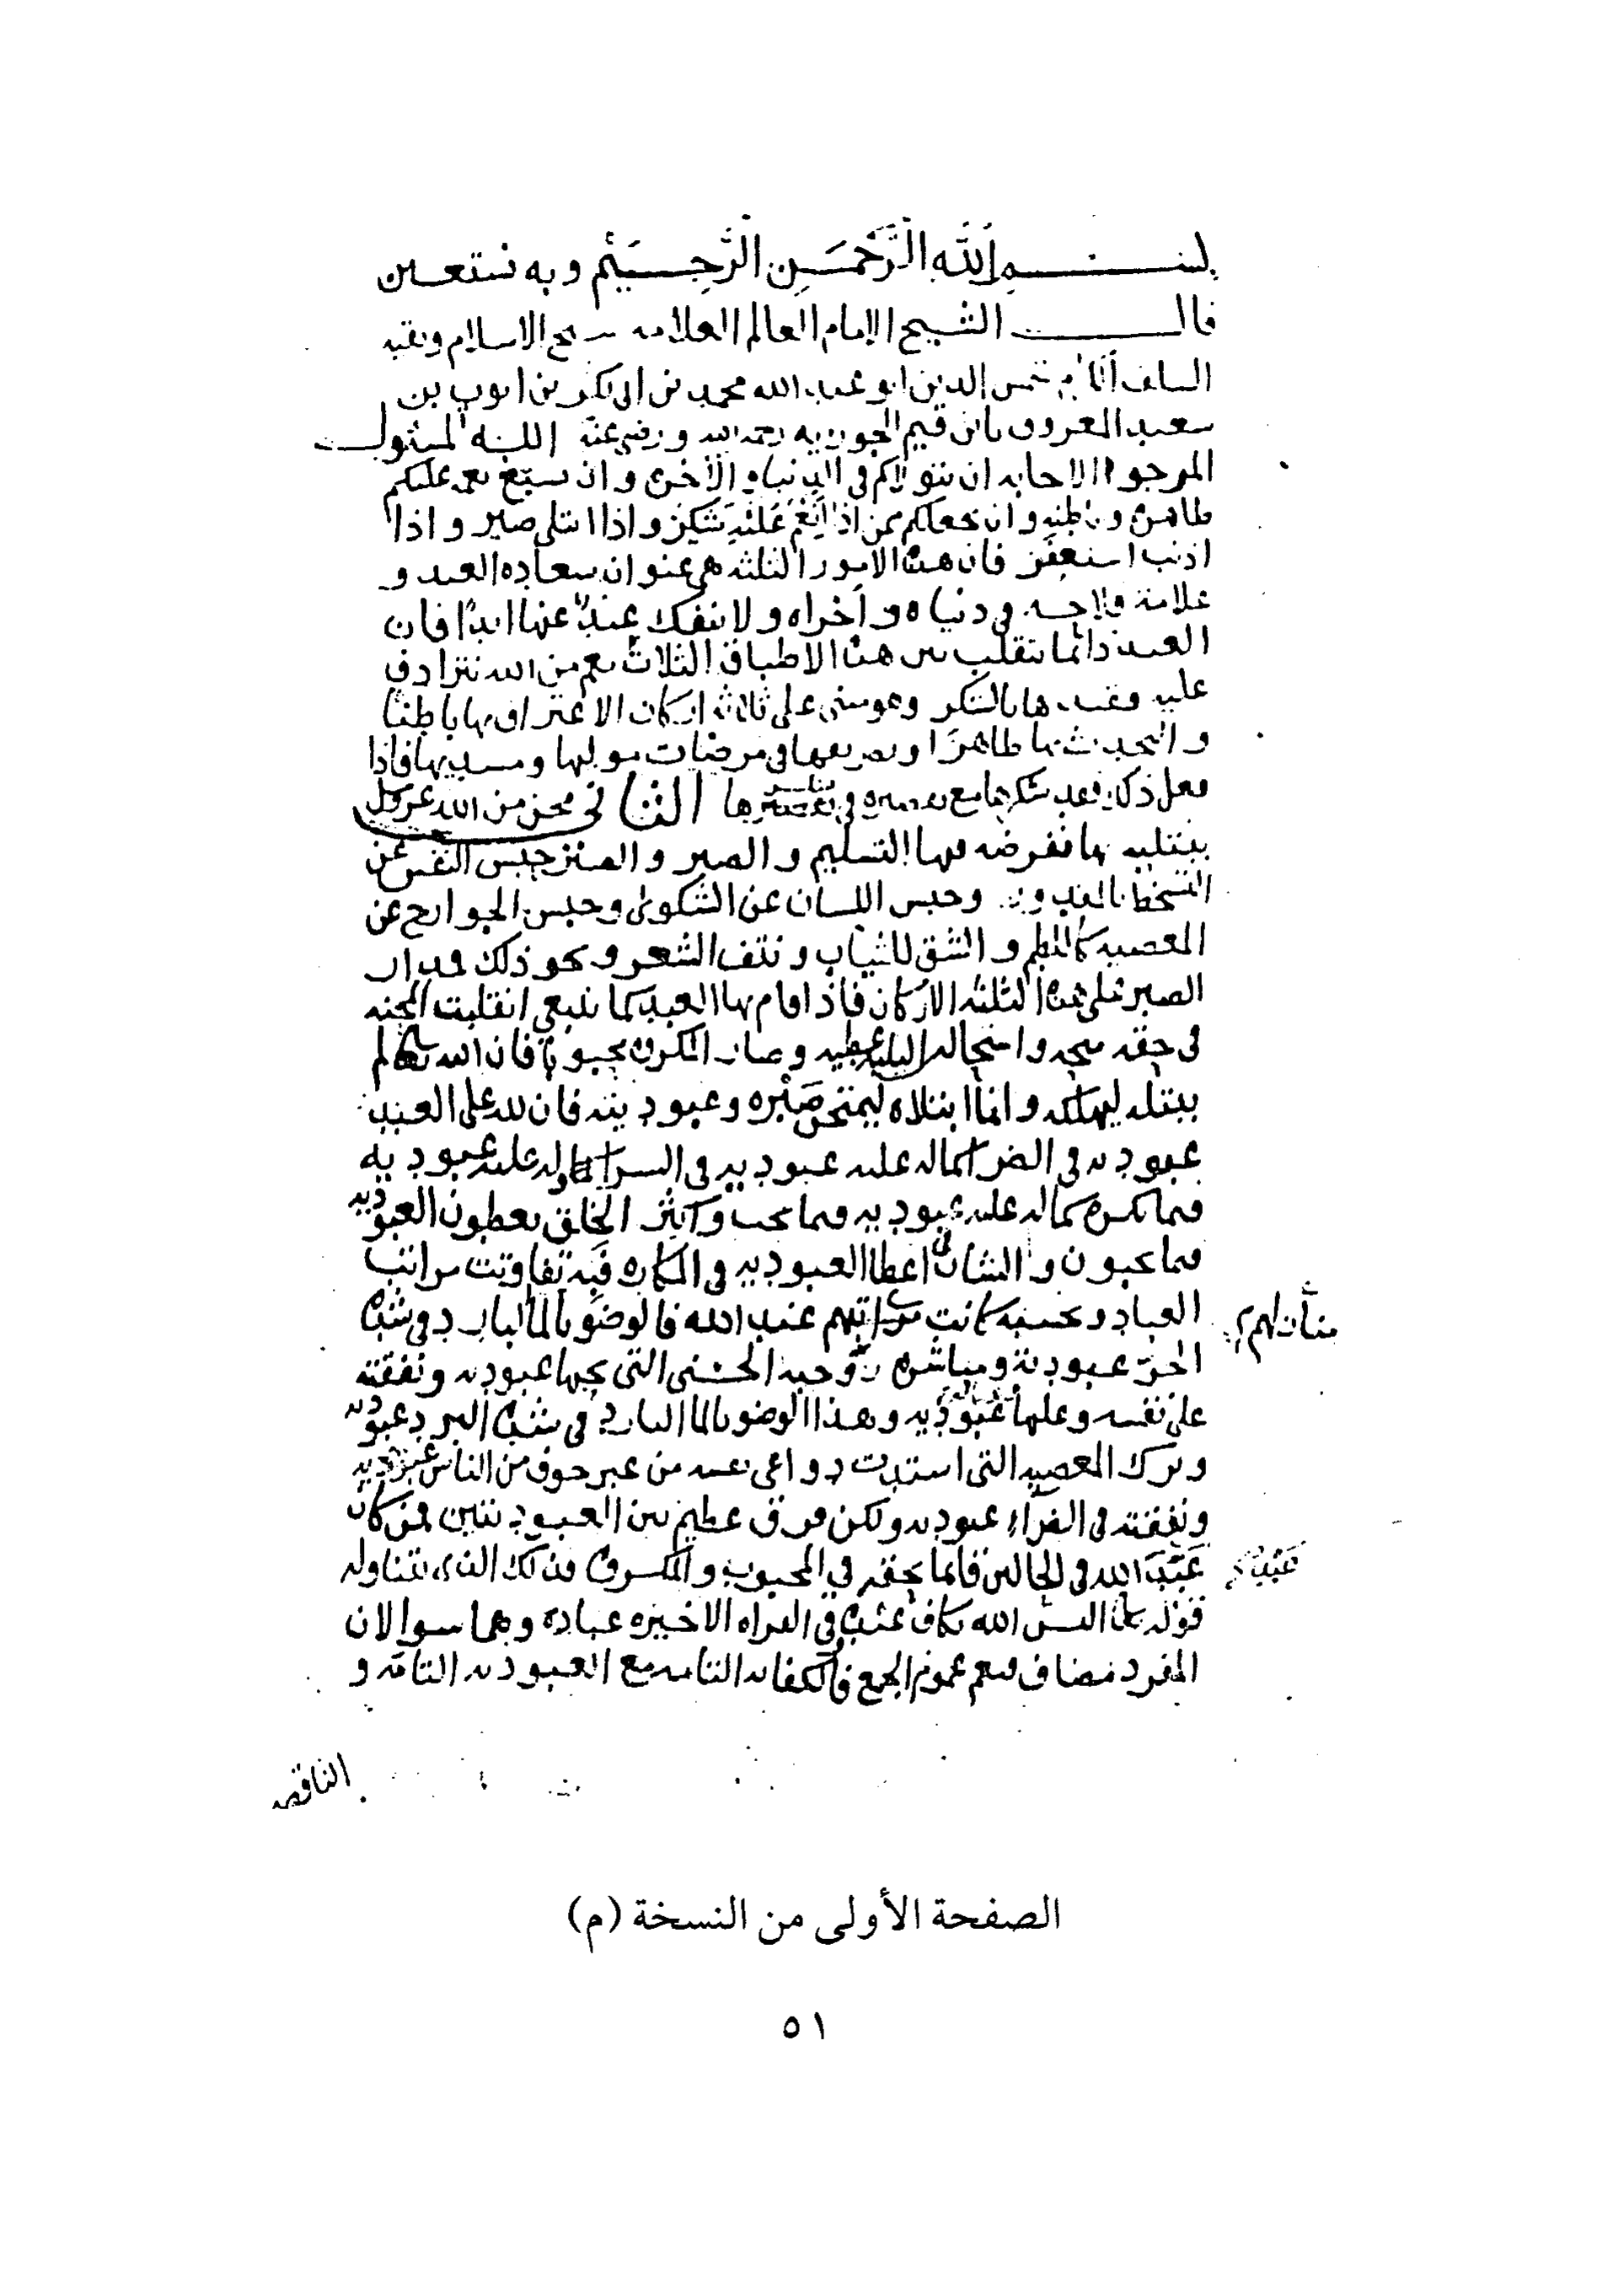 بسم الله الرحمن الرحيم وبه نستعين
قال الشيخ الإمام العالم العلامه شيخ الاسلام وبقيه
السلف شمس الدين ابو عبد الله محمد بن ابى بكر بن ايوب بن
سعيد المعروف بابن قيم الجوزيه رحمه الله ورضى عنه الله المسئول
المرجو الاجابه ان يتولاكم فى الدنيا والآخرة وان يسبغ نعمه عليكم
ظاهرة وباطنه وان يجعلكم ممن اذا أنعم عليه شكر واذا ابتلى صبر واذا
اذنب استغفر فان هذه الامور الثلثه هى عنوان سعاده العبد و
علامة فلاحه فى دنياه وأخراه ولا ينفك عبد عنها ابدا فان
العبد دائما يتقلب بين هذه الاطباق الثلاث نعم من الله تترادف
عليه وقيدها بالشكر وهو مبنى على ثلاثة اركان الاعتراف بها باطنا
والتحدث بها ظاهرا وتصريفها فى مرضات موليها ومسديها فاذا
فعل ذلك فقد شكرها مع تقصيره فى شكرها الثانى محن من الله عز وجل
يبتليه بها ففرضه فيها التسليم والصبر والصبر حبس النفس عن
التسخط بالمقدور وحبس اللسان عن الشكوى وحبس الجوارح عن
المعصيه كاللطم والشق للثياب ونتف الشعر ونحو ذلك فمدار
الصبر على هذه الثلثه الاركان فاذا قام بها العبد كما ينبغي انقلبت المحنه
فى حقه منحه واستحالت البليه عطيه وصار المكروه محبوبا فان الله تعالى لم
يبتله ليهلكه وانما ابتلاه ليمتحن صبره وعبوديته فان لله على العبد
عبوديه فى الضرا كما له عليه عبوديه فى السرا وله عليه عبوديه
فيما يكره كما له عليه عبوديه فيما يحب واكثر الخلق يعطون العبوديه
فيما يحبون والشان فى اعطا العبوديه فى المكاره فبه تفاوتت مراتب
العباد وبحسبه كانت مراتبهم عند الله فالوضو بالما البارد فى شدة
منازلهم
الحر عبودية ومباشرة زوجته الحسنى التى يحبها عبوديه ونفقته
على نفسه وعليها عبوديه وهذا الوضو بالما البارد فى شدة البرد عبوديه
وترك المعصيه التى اشتدت دواعى نفسه من غير خوف من الناس عبوديه
ونفقته فى الضراء عبوديه ولكن فرق عظيم بين العبوديتين فمن كان
عبدا لله فى الحالين قائما بحقه في المحبوب والمكروه فذلك الذى يتناوله
قوله تعالى اليس الله بكاف عبده وفي القراه الاخيره عباده وهما سوا لان
المفرد مضاف فيعم عموم الجمع فالكفايه التامه مع العبوديه التامة و
الناقصه
الصفحة الأولى من النسخة (م)
٥١